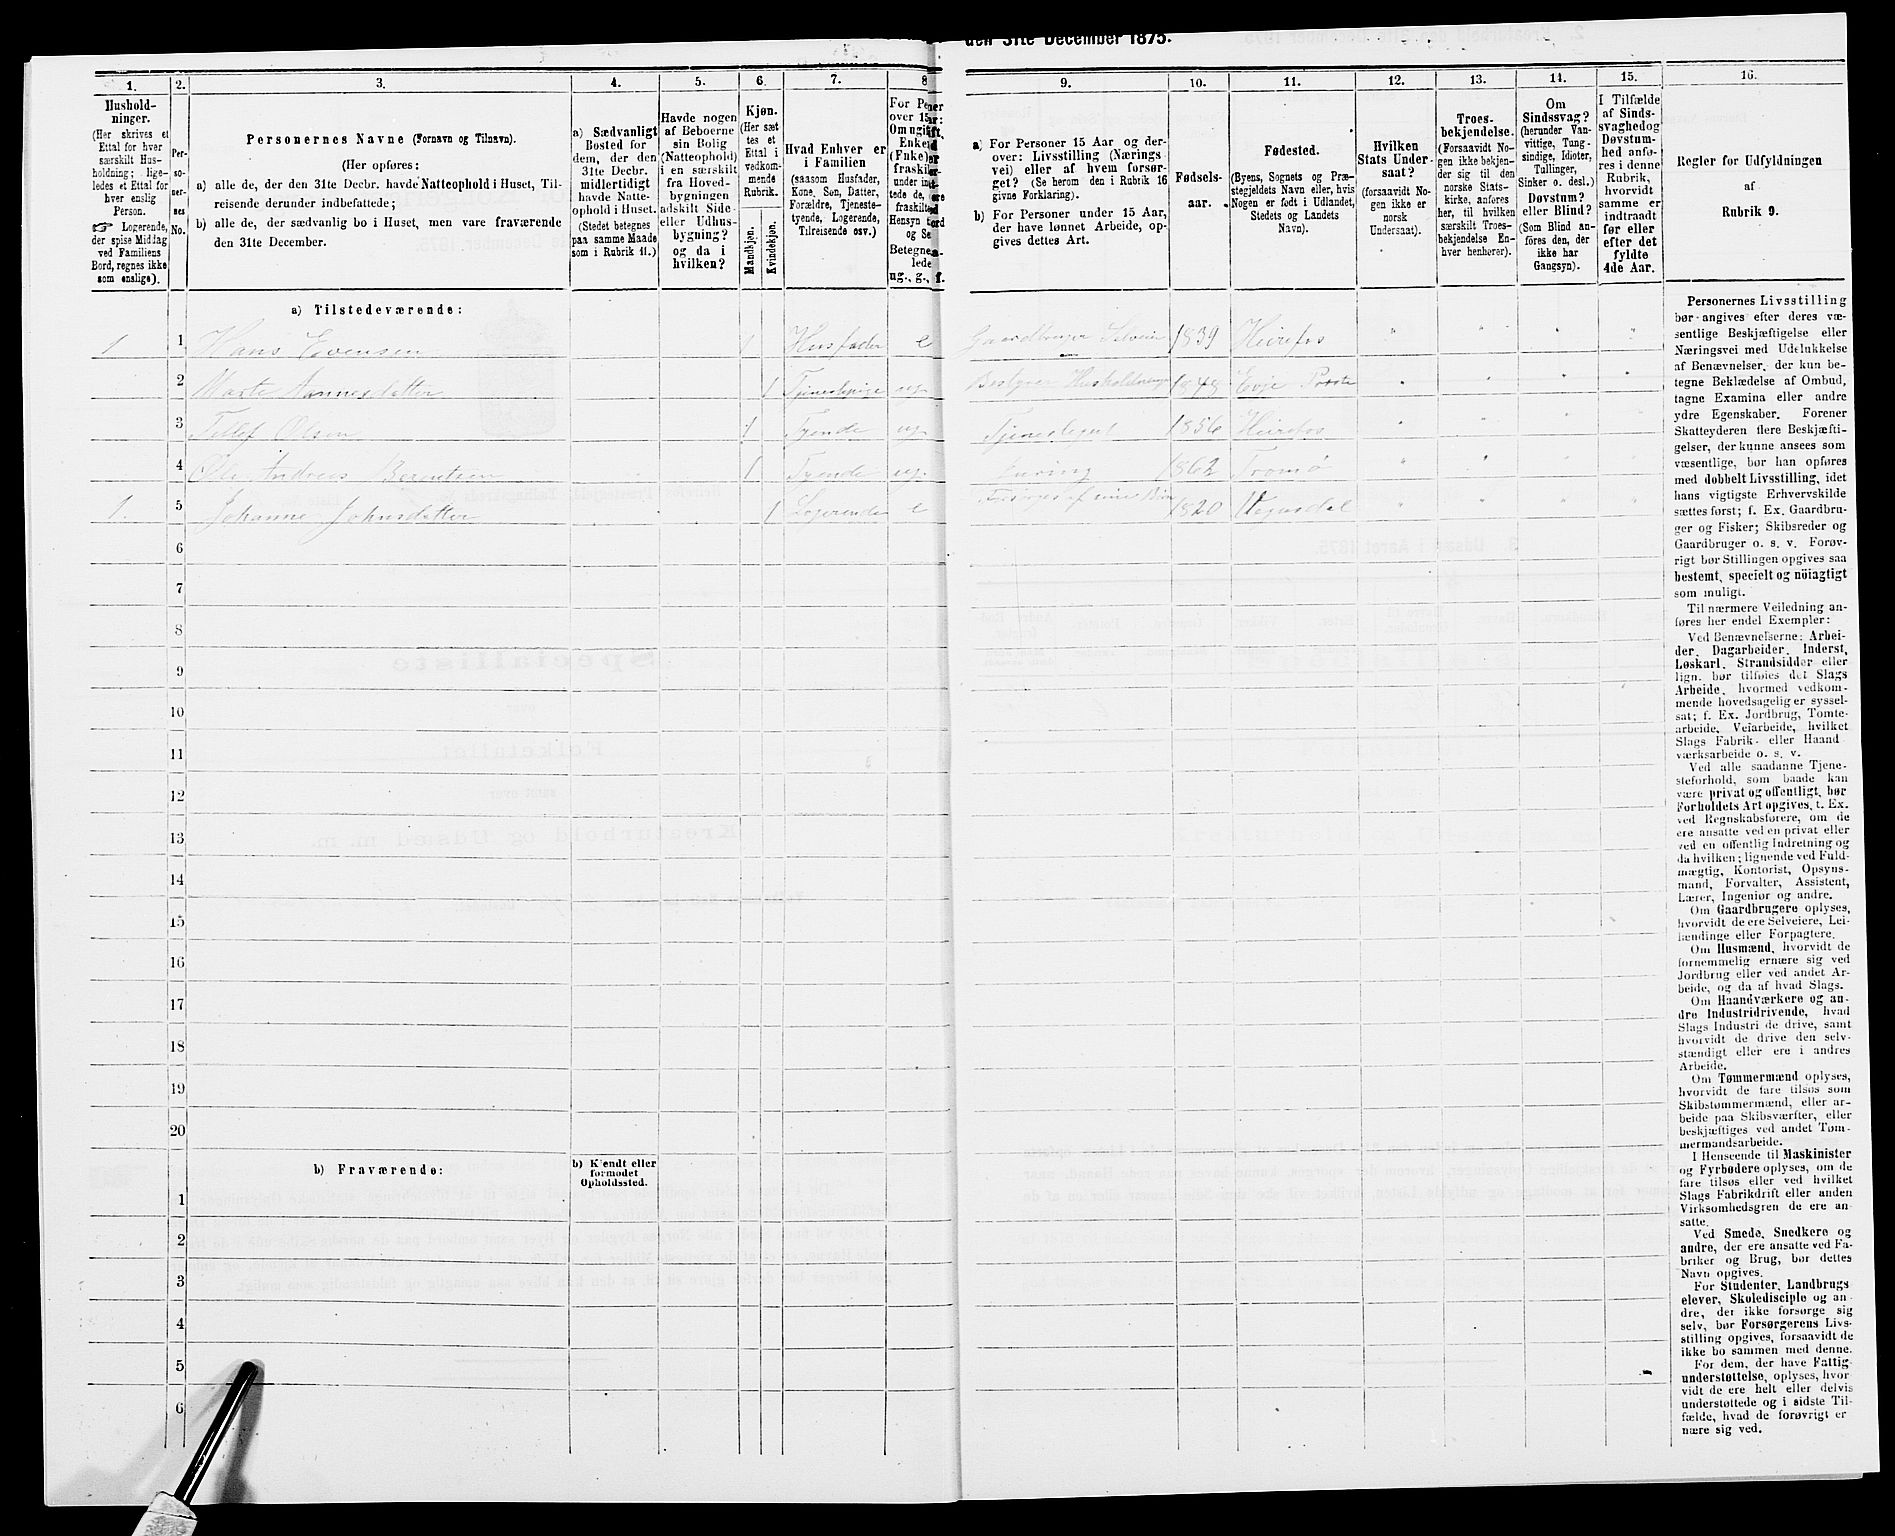 den 31te December 1875.
1. 2. 3. 4. 5. 6. 7. 8
Hushold-
ninger.
(Her skrives et
Ettal for hver
særskilt Hus-
holdning; lige-
ledes et Ettal for
hver enslig
Person.
☞ Logerende,
der spise Middag
ved Familiens
Bord, regnes ikke
som enslige).
Per-
so-
ner-
nes
No.
Personernes Navne (Fornavn og Tilnavn).
(Her opføres:
a) alle de, der den 31te Decbr. havde Natteophold i Huset, Til-
reisende derunder indbefattede;
b) alle de, der sædvanlig bo i Huset, men vare fraværende
den 31te December.
a) Sædvanligt
Bosted for
dem, der den
31te Decbr.
midlertidigt
havde Natte-
ophold i Huset.
(Stedet betegnes
paa samme Maade
som i Rubrik 11.)
Havde nogen
af Beboerne
sin Bolig
(Natteophold)
i en særskilt
fra Hoved-
bygningen
adskilt Side-
eller Udhus-
bygning?
og da i
hvilken?
Kjøn.
(Her sæt
tes et
Ettal i
vedkom-
mende
Rubrik.
Mandkjøn.
Kvindekjøn.
Hvad Enhver er
i Familien
(saasom Husfader,
Kone, Søn, Datter,
Forældre, Tjeneste-
tyende, Logerende,
Tilreisende osv.)
For Pe
over 15
Om ugift
Enke
(Fnke)
fraskil
under ind
tede de,
fraskilte
Hensyn
og Se
Betegne
lede
ug., g.,
9. 10. 11. 12. 13. 14. 15. 16.
a) For Personer 15 Aar og der-
over: Livsstilling (Nærings
vei) eller af hvem forsør-
get? (Se herom den i Rubrik 16
givne Forklaring).
b) For Personer under 15 Aar,
der have lønnet Arbeide, op-
gives dettes Art.
Fødsels-
aar.
Fødested.
(Byens, Sognets og Præ-
stegjeldets Navn eller, hvis
Nogen er født i Udlandet,
Stedets og Landets
Navn).
Hvilken
Stats Under-
saat?
(forsaavidt No-
gen ikke er
norsk
Undersaat).
Troes-
bekjendelse.
(Forsaavidt No-
gen ikke bekjen-
der sig til den
norske Stats-
kirke, anføres
her, til hvilken
særskilt Troes-
bekjendelse En-
hver henhører).
Om
Sindssvag?
(herunder Van-
vittige, Tung-
sindige, Idioter,
Tullinger,
Sinker o. desl.)
Døvstum?
eller Blind?
(Som Blind an-
føres den, der
ikke har
Gangsyn).
I Tilfælde
af Sinds-
svaghed og
Døvstum-
hed anfø-
res i denne
Rubrik,
hvorvidt
samme er
indtraadt
før eller
efter det
fyldte
4de Aar.
Regler for Udfyldningen
af
Rubrik 9.
a) Tilstedeværende:
1 1 Hans Evensen 1 Husfader e Gaardbruger Selveier 1839 Heirefos " " " "
2 Marte Aannesdatter 1 Tjenestepige ug. Bestyrer Husholdninge 1848 Evje " " " "
3 Tellef Olsen 1 Tyende ug. Tjenestegut 1856 Heirefos " " " "
4 Ole Andreas Berentsen 1 Tyende ug. 1862 Tromø " " " "
1. 5 Johanne Johnsdatter 1 Logerende e Forsørges af sine Børn 1820 Vegusdal " " " "
6
7
8
9
10
11
12
13
14
15
16
17
18
19
20
b) Fraværende:
b) Kendt eller
formodet
Opholdssted.
1
2
3
4
5
6
Personernes Livsstilling
bør angives efter deres væ-
sentlige Beskjæftigelse eller
Næringsvei med Udelukkelse
af Benævnelser, der kun be-
tegne Beklædelse af Ombud,
tagne Examina eller andre
ydre Egenskaber. Forener
Skatteyderen flere Beskjæfti-
gelser, der kunne ansees som
væsentlige, bør han opføres
med dobbelt Livsstilling, idet
hans vigtigste Erhvervskilde
sættes først; f. Ex. Gaardbru-
ger og Fisker; Skibsreder og
Gaardbruger o. s. v. Forøv-
rigt bør Stillingen opgives saa
bestemt, specielt og nöiagtigt
som muligt.
Til nærmere Veiledning an-
føres her endel Exempler:
Ved Benævnelserne: Arbei-
der, Dagarbeider, Inderst,
Løskarl, Strandsidder eller
lign. bør tilføies det Slags
Arbeide, hvormed vedkom-
mende hovedsagelig er syssel-
sat; f. Ex. Jordbrug, Tomte-
arbeide, Veiarbeide, hvilket
Slags Fabrik- eller Haand
værksarbeide o. s. v.
Ved alle saadanne Tjene-
steforhold, som baade kan
være privat og offentligt, bør
Forholdets Art opgives, t. Ex.
ved Regnskabsførere, om de
ere ansatte ved en privat eller
ved en offentlig Indretning og
da hvilken; lignende ved Fuld-
mægtig, Kontorist, Opsyns-
mand, Forvalter, Assistent,
Lærer, Ingeniør og andre.
Om Gaardbrugere oplyses,
hvorvidt de ere Selveiere, Lei-
lændinge eller Forpagtere.
Om Husmænd, hvorvidt de
fornemmelig ernære sig ved
Jordbrug eller ved andet Ar-
beide, og da af hvad Slags.
Om Haandværkere og an-
dre Industridrivende, hvad
Slags Industri de drive, samt
hvorvidt de drive den selv-
stændigt eller ere i andres
Arbeide.
Om Tømmermænd oplyses,
hvorvidt de fare tilsøs som
Skibstømmermænd, eller ar-
beide paa Skibsværfter, eller
beskjæftiges ved andet Tøm-
mermandsarbeide.
I Henseende til Maskinister
og Fyrbødere oplyses, om de
fare tilsøs eller ved hvilket
Slags Fabrikdrift eller anden
Virksomhedsgren de ere an-
satte.
Ved Smede, Snedkere og
andre, der ere ansatte ved Fa-
briker og Brug, bør dettes
Navn opgives.
For Studenter, Landbrugs
elever, Skoledisciple og an
dre, der ikke forsørge sig
selv, bør Forsørgerens Livs-
stilling opgives, forsaavidt de
ikke bo sammen med denne.
For dem, der have Fattig-
understøttelse, oplyses, hvor-
vidt de ere helt eller delvis
understøttede og i sidste Til-
fælde, hvad de forøvrigt er
nære sig ved.